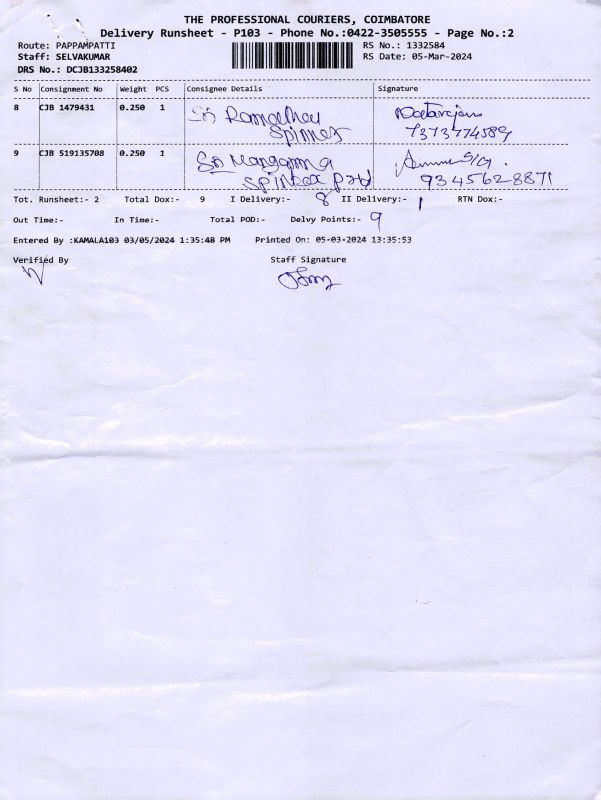 THE PROFESSIONAL COURIERS, COIMBATORE
Delivery Runsheet - P103 - Phone No.:0422-3505555 - Page No.:2
Route: PAPPAMPATTI RS No.: 1332584
Staff: SELVAKUMAR RS Date: 05-Mar-2024
DRS No.: DCJB133258402
S No Consignment No Weight PCS Consignee Details Signature
8 CJB 1479431 0.250 1 Sri
Spinners 7373774589
9 CJB 519135708 0.250 1 Sri Mangamma
9345628871
Tot. Runsheet:- 2 Total Dox:- 9 I Delivery:- 8 II Delivery:- 1 RTN Dox:-
Out Time:- In Time:- Total POD:- Delvy Points:- 9
Entered By :KAMALA103 03/05/2024 1:35:48 PM Printed On: 05-03-2024 13:35:53
Verified By Staff Signature